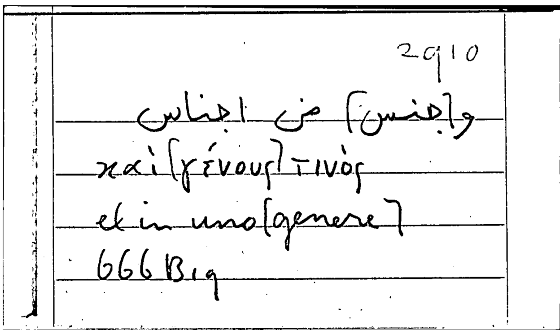 2910
و[جنس] من اجناس
καὶ [γένους] τινὸς
et in uno [genere]
666 B19